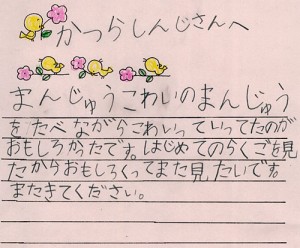 かつらしんじさんへ
まんじゅうこわいのまんじゅう
をたべながらこわいっていってたのが
おもしろかったです。はじめてのらくごを見
たからおもしろくってまた見たいです。
またきてください。